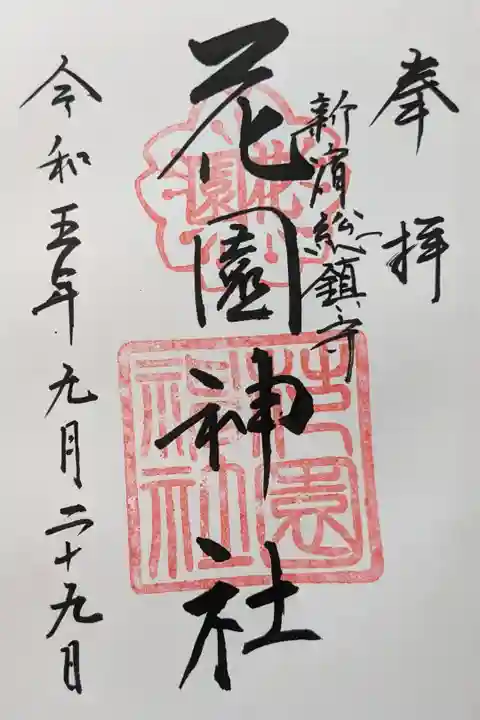 奉拝
新宿総鎮守
花園神社
令和五年九月二十九日
花園
花園神社